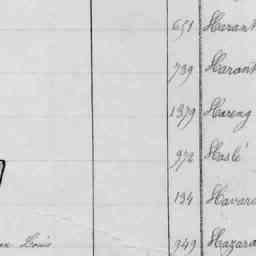 651 Harant
739 Harant
1379 Hareng
972 Haslé
134 Havar
Louis 949 Hazard